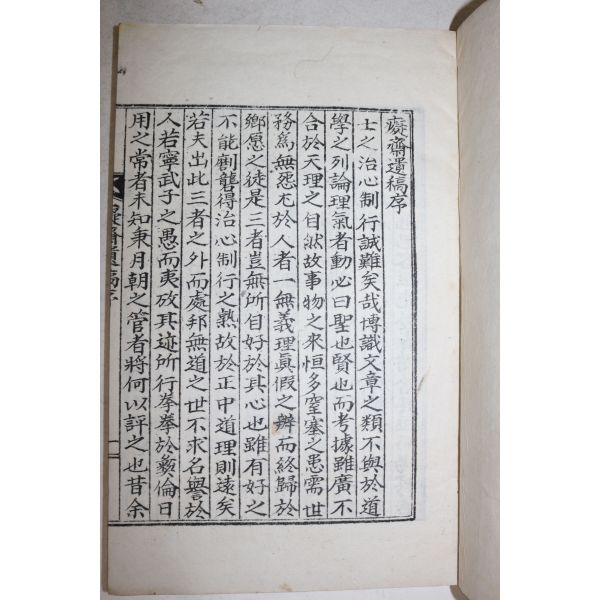 癡齋遺稿序
士之治心制行誠難矣哉博識文章之類不與於道
學之列論理氣者動必曰聖也賢也而考據雖廣不
合於天理之自然故事物之來恒多窒塞之患需世
務爲無怨尤於人者一無義理眞假之辨而終歸於
鄉愿之徒是三者豈無所自好於其心也雖有好之
不能劑龒得治心制行之熟故於正中道理則遠矣
若夫出此三者之外而處邦無道之世不求名譽於
人若寧武子之愚而夷攷其迹所行拳拳於彜倫日
用之常者未知秉月朝之管者將何以評之也昔余
癡齋遺稿序